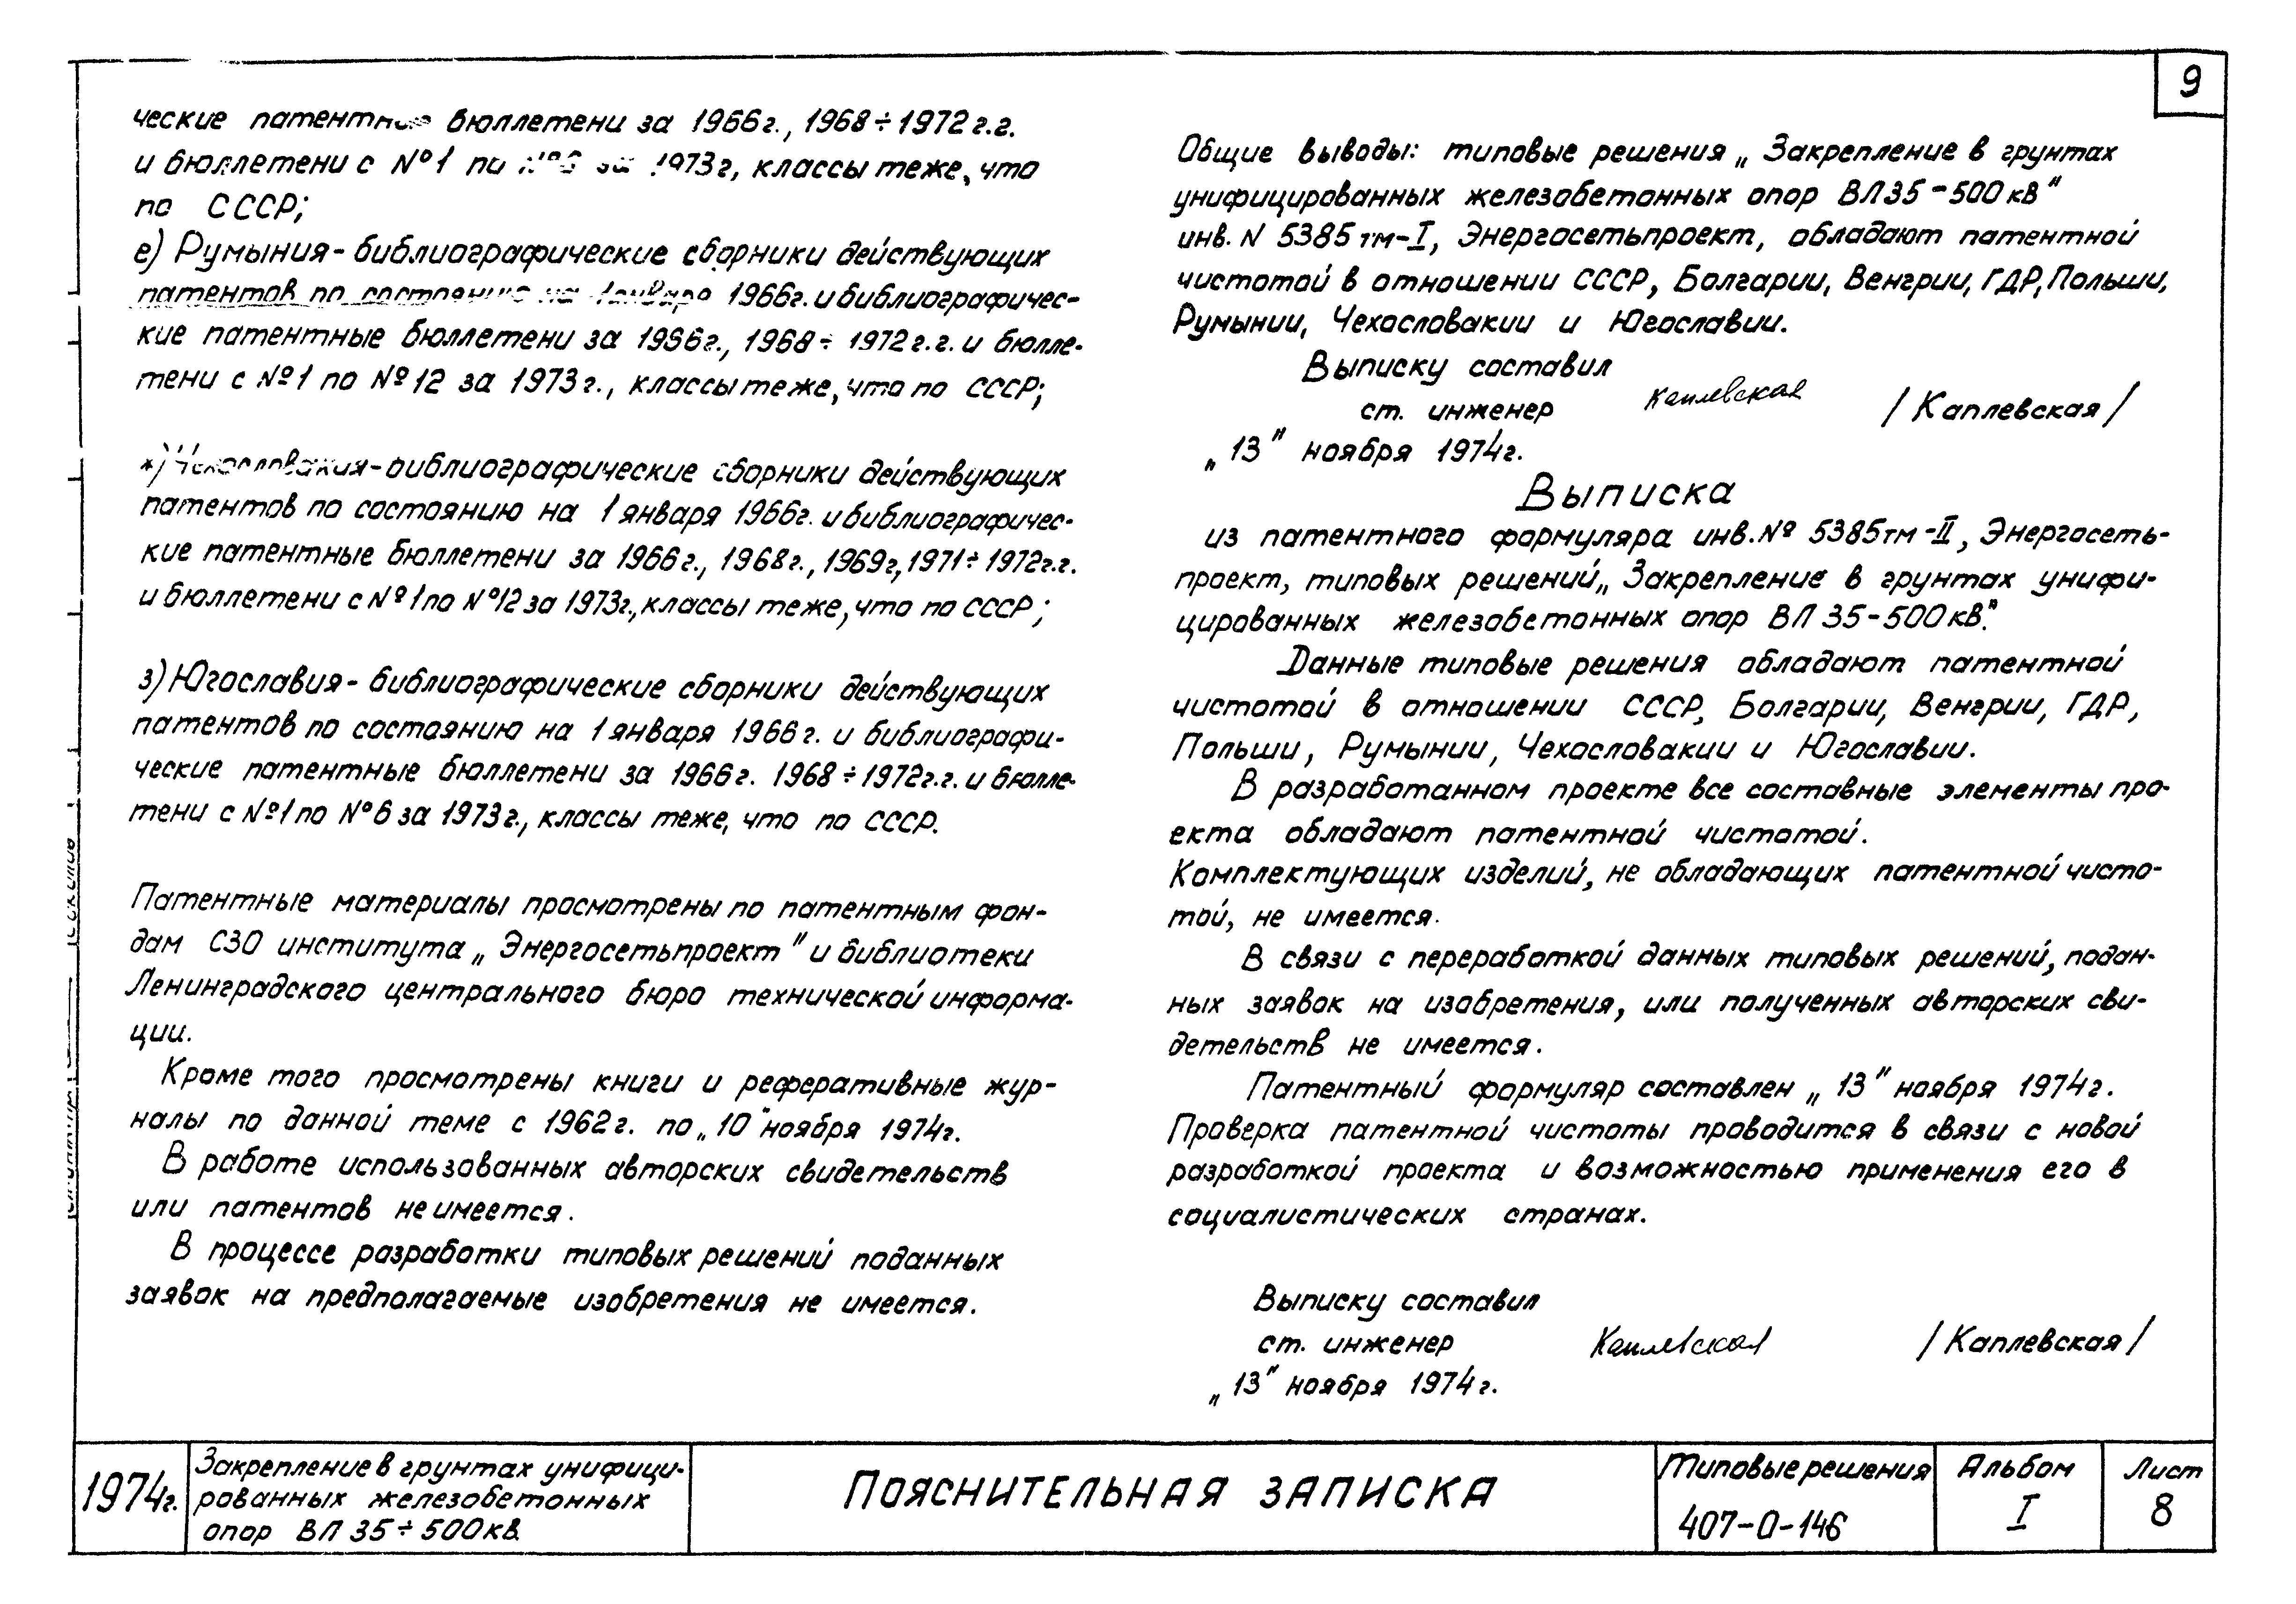 9
ческие патентные бюллетени за 1966г., 1968÷1972г.г.
и бюллетени с №1 по №6 за 1973г, классы теже, что
по СССР;
е) Румыния-библиографические сборники действующих
патентов по состоянию на 1января 1966г. и библиографичес-
кие патентные бюллетени за 1966г., 1968÷1972г.г. и бюлле-
тени с №1 по №12 за 1973г., классы теже, что по СССР;
ж) Чехословакия-библиографические сборники действующих
патентов по состоянию на 1января 1966г. и библиографичес-
кие патентные бюллетени за 1966г., 1968г., 1969г, 1971÷1972г.г.
и бюллетени с №1 по №12 за 1973г., классы теже, что по СССР;
з) Югославия-библиографические сборники действующих
патентов по состоянию на 1января 1966г. и библиографи-
ческие патентные бюллетени за 1966г. 1968÷1972г.г. и бюлле-
тени с №1 по №6 за 1973г., классы теже, что по СССР.
Патентные материалы просмотрены по патентным фон-
дам СЗО института „Энергосетьпроект" и библиотеки
Ленинградского центрального бюро технической информа-
ции.
Кроме того просмотрены книги и реферативные жур-
налы по данной теме с 1962г. по „10" ноября 1974г.
В работе использованных авторских свидетельств
или патентов не имеется.
В процессе разработки типовых решений поданных
заявок на предполагаемые изобретения не имеется.
Общие выводы: типовые решения „Закрепление в грунтах
унифицированных железобетонных опор ВЛ35-500кВ"
инв. N 5385тм-I, Энергосетьпроект, обладают патентной
чистотой в отношении СССР, Болгарии, Венгрии, ГДР, Польши,
Румынии, Чехословакии и Югославии.
Выписку составил
ст. инженер Каплевская /Каплевская/
„13" ноября 1974г.
Выписка
из патентного формуляра инв.№ 5385тм-II, Энергосеть-
проект, типовых решений „Закрепление в грунтах унифи-
цированных железобетонных опор ВЛ 35-500кВ".
Данные типовые решения обладают патентной
чистотой в отношении СССР, Болгарии, Венгрии, ГДР,
Польши, Румынии, Чехословакии и Югославии.
В разработанном проекте все составные элементы про-
екта обладают патентной чистотой.
Комплектующих изделий, не обладающих патентной чисто-
той, не имеется.
В связи с переработкой данных типовых решений, подан-
ных заявок на изобретения, или полученных авторских сви-
детельств не имеется.
Патентный формуляр составлен „13" ноября 1974г.
Проверка патентной чистоты проводится в связи с новой
разработкой проекта и возможностью применения его в
социалистических странах.
Выписку составил
ст. инженер Каплевская /Каплевская/
„13" ноября 1974г.
1974г.
Закрепление в грунтах унифици-
рованных железобетонных
опор ВЛ 35÷500кВ
Пояснительная записка
Типовые решения
407-0-146
Альбом
I
Лист
8